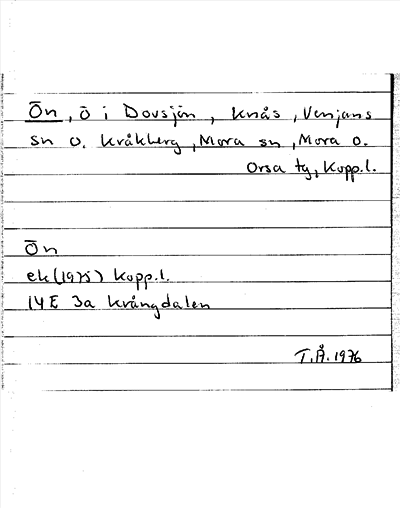 Ön, ö i Dovsjön, Knås, Venjans
sn o. Kråkberg, Mora sn, Mora o.
Orsa tg, Kopp.l.
Ön
ek (1975) Kopp.l.
14E 3a Krångdalen
T.Å. 1976